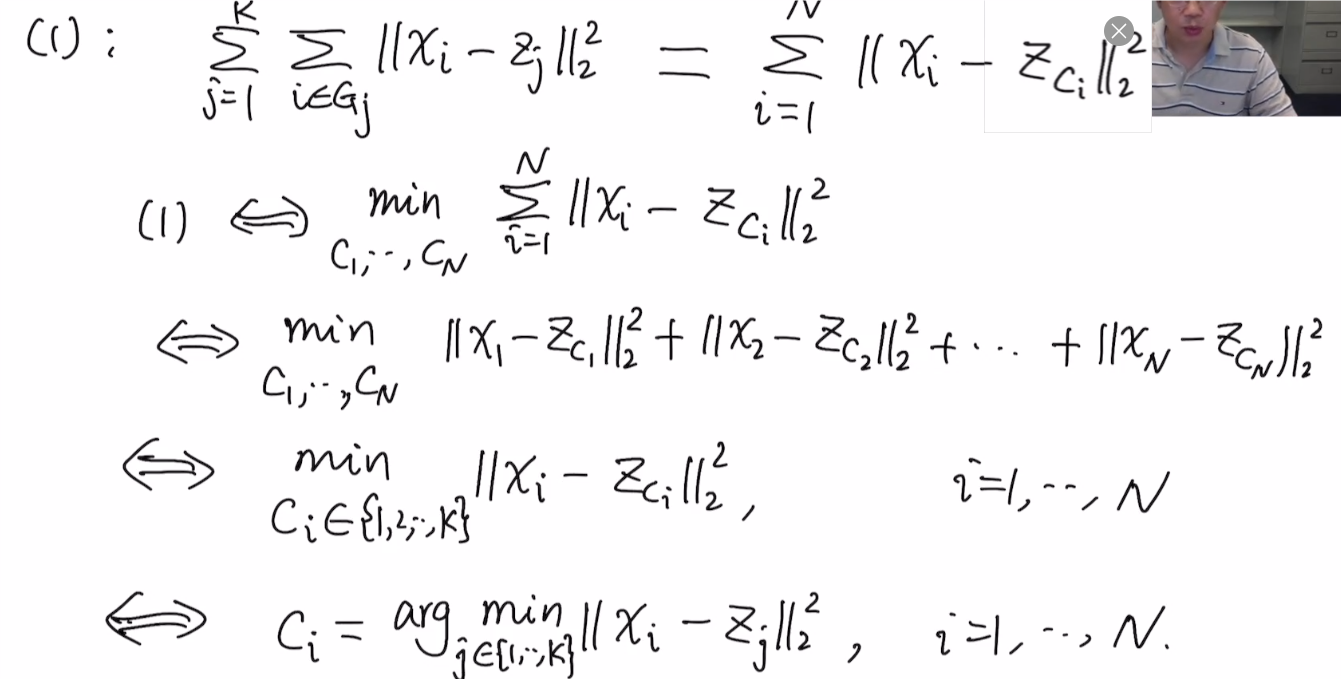 (1): $\sum_{j=1}^{K} \sum_{i \in G_j} \|x_i - z_j\|_2^2 = \sum_{i=1}^{N} \|x_i - z_{c_i}\|_2^2$
(1) $\Longleftrightarrow \min_{c_1, \cdots, c_N} \sum_{i=1}^{N} \|x_i - z_{c_i}\|_2^2$
$\Longleftrightarrow \min_{c_1, \cdots, c_N} \|x_1 - z_{c_1}\|_2^2 + \|x_2 - z_{c_2}\|_2^2 + \cdots + \|x_N - z_{c_N}\|_2^2$
$\Longleftrightarrow \min_{c_i \in \{1,2,\cdots,K\}} \|x_i - z_{c_i}\|_2^2, \quad i=1, \cdots, N$
$\Longleftrightarrow c_i = \arg\min_{j \in \{1,\cdots,K\}} \|x_i - z_j\|_2^2, \quad i=1, \cdots, N.$